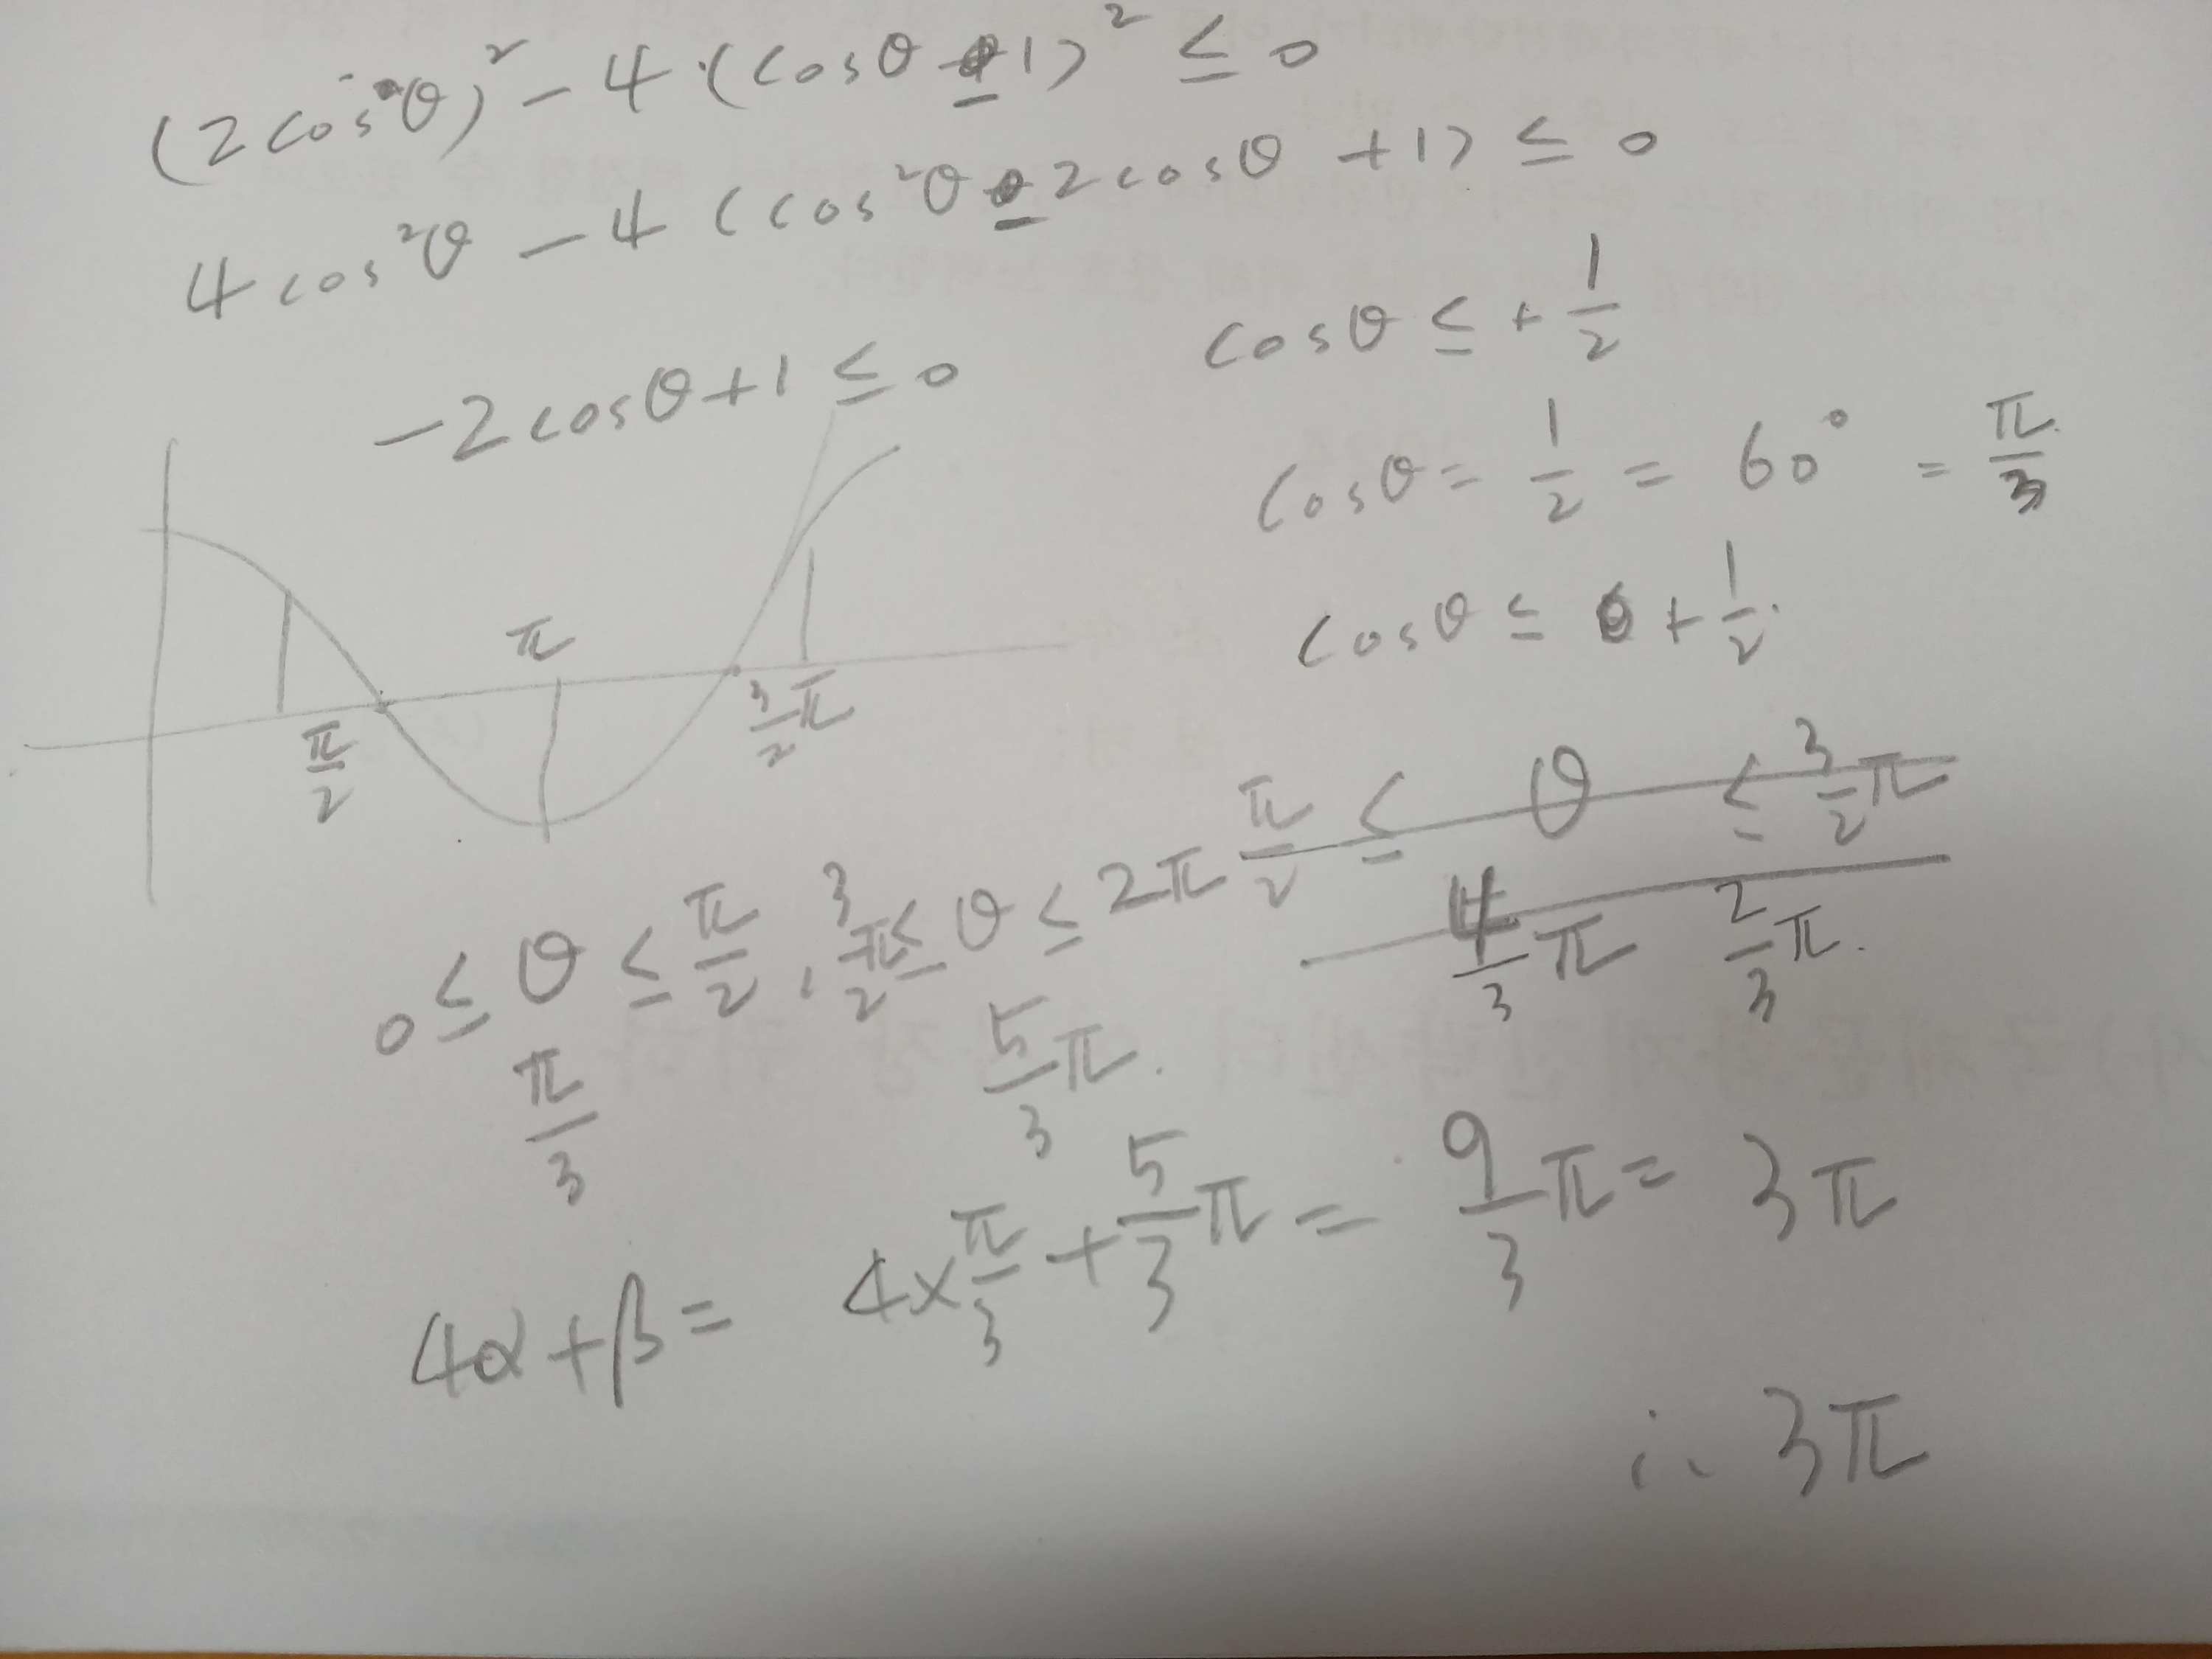 (2cosθ)² - 4·(cosθ - 1)² ≤ 0
4cos²θ - 4(cos²θ - 2cosθ + 1) ≤ 0
-2cosθ + 1 ≤ 0
cosθ ≤ + 1/2
cosθ = 1/2 = 60° = π/3.
cosθ ≤ + 1/2.
π
π/2
3/2 π
π/2 ≤ θ ≤ 3/2 π
4/3 π 2/3 π.
0 ≤ θ ≤ π/2, 3/2 π ≤ θ ≤ 2π
π/3 5/3 π.
4α + β = 4 × π/3 + 5/3 π = 9/3 π = 3π
∴ 3π